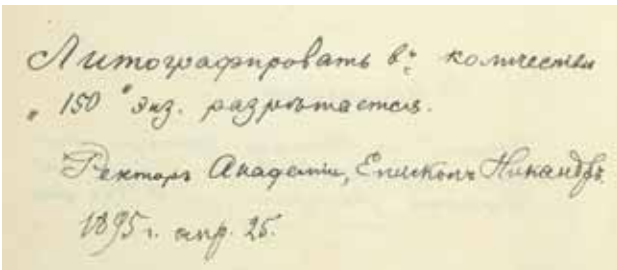 Литографировать въ количествѣ
"150" экз. разрѣшается.
Ректоръ Академіи, Епископъ Никандръ.
1895 г. апр. 25.